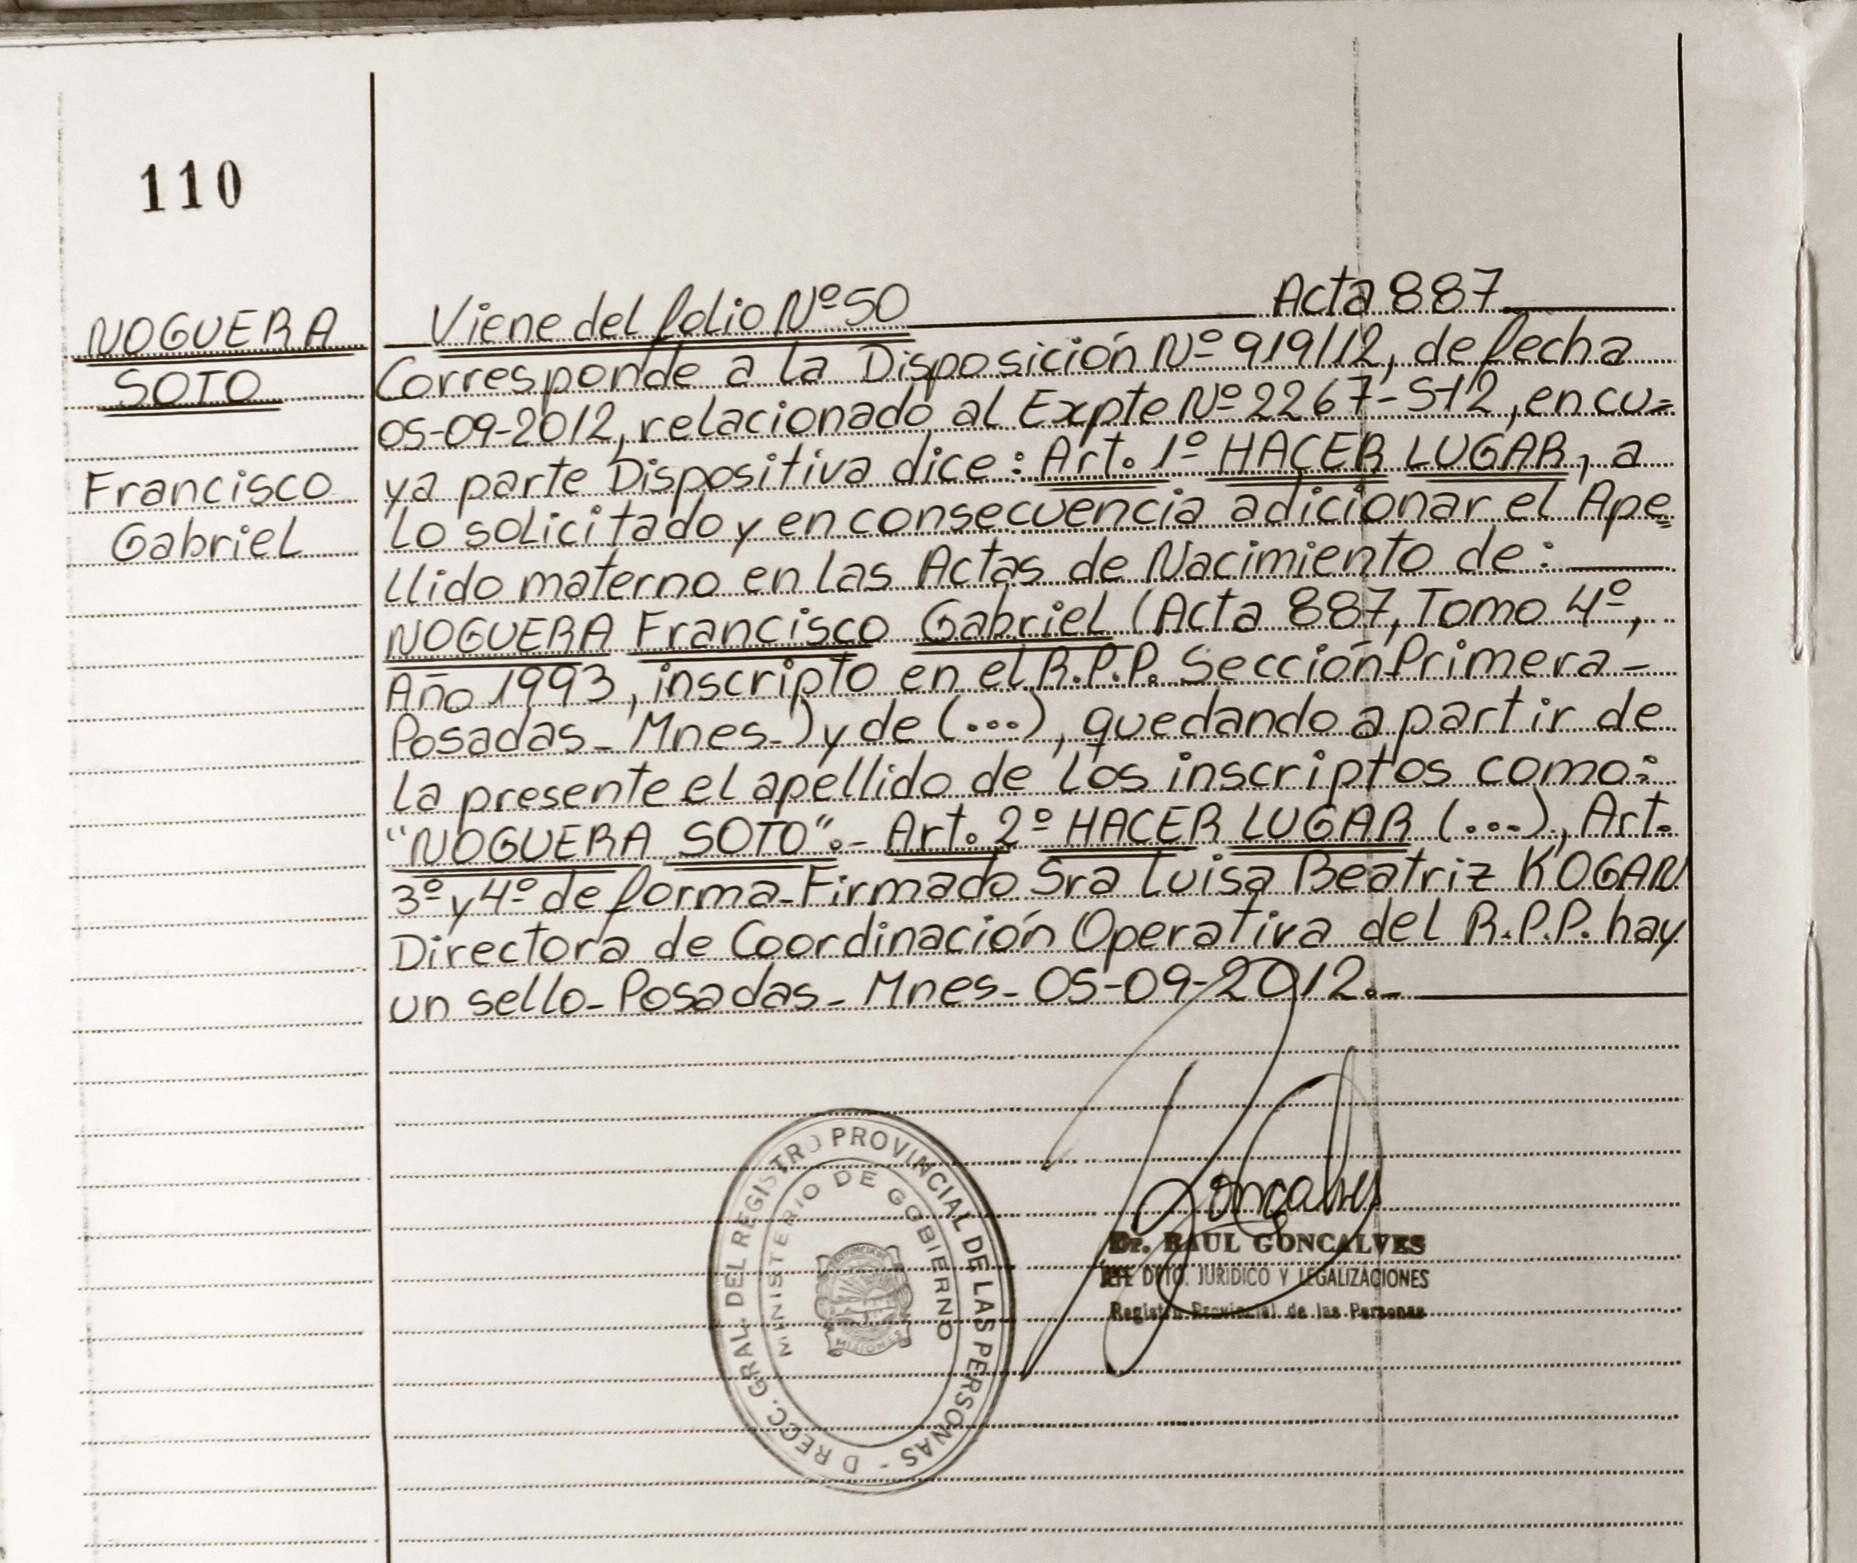 110
NOGUERA
SOTO
Francisco
Gabriel
Viene del folio Nº 50 Acta 887
Corresponde a la Disposición Nº 919/12, de fecha
05-09-2012, relacionado al Expte Nº 2267-S-12, en cu=
ya parte Dispositiva dice: Art. 1º HACER LUGAR, a
lo solicitado y en consecuencia adicionar el Ape=
llido materno en las Actas de Nacimiento de:
NOGUERA Francisco Gabriel (Acta 887, Tomo 4º,
Año 1993, inscripto en el R.P.P. Sección Primera-
Posadas- Mnes-) y de (...), quedando a partir de
la presente el apellido de los inscriptos como:
"NOGUERA SOTO".- Art. 2º HACER LUGAR (...), Art.
3º y 4º de forma-Firmado Sra Luisa Beatriz KOGAN
Directora de Coordinación Operativa del R.P.P. hay
un sello-Posadas- Mnes- 05-09-2012.-
DIRECC. GRAL. DEL REGISTRO PROVINCIAL DE LAS PERSONAS -
MINISTERIO DE GOBIERNO
MISIONES
Goncalves
Dr. RAUL GONCALVES
JEFE DPTO. JURIDICO Y LEGALIZACIONES
Registro Provincial de las Personas